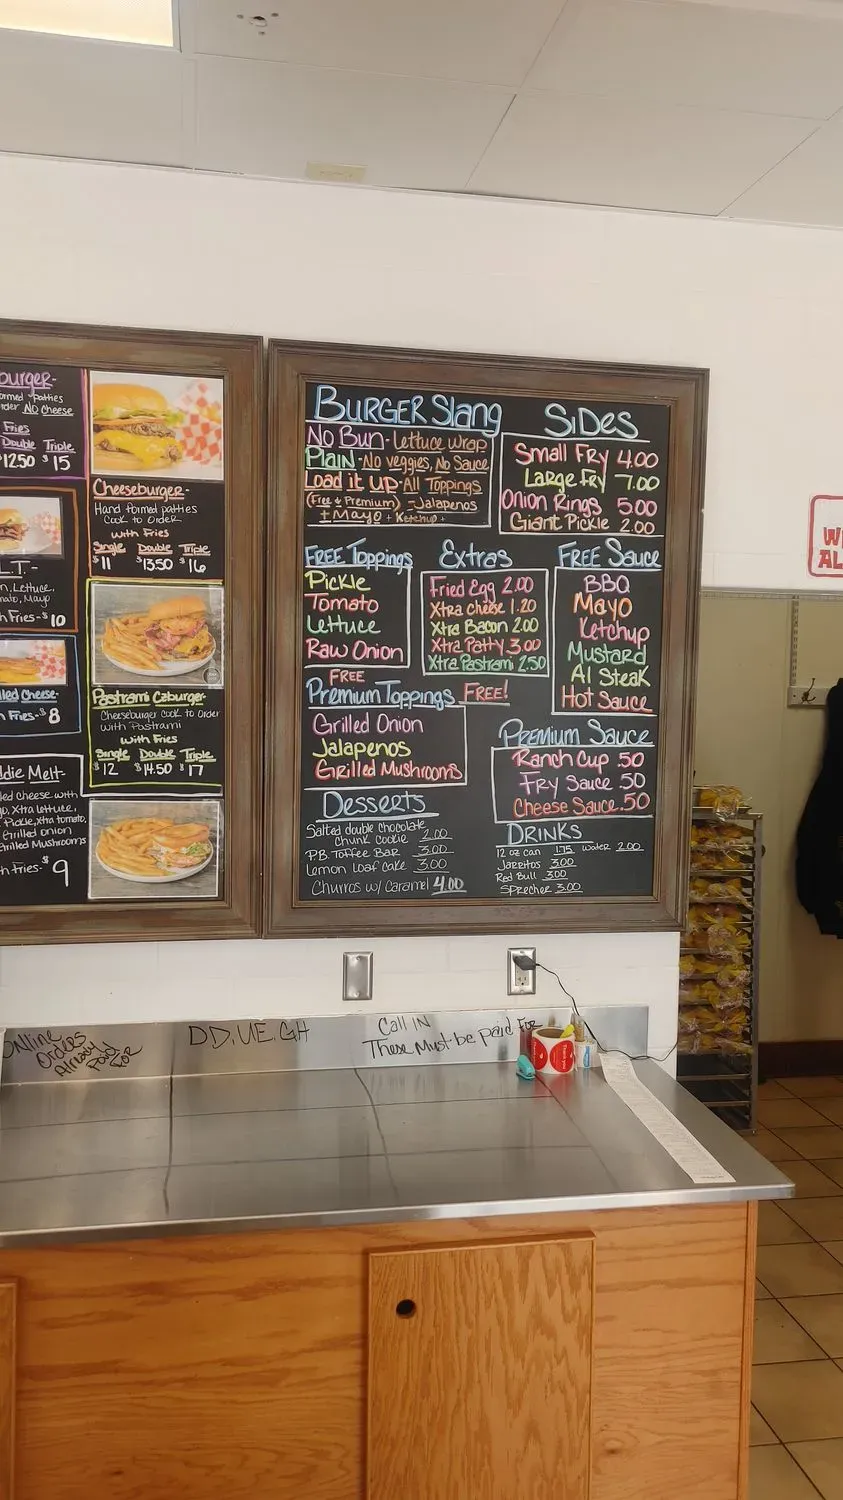 burger-
ormed patties
rder NO cheese
Fries
Double Triple
1250 $15
L.T.-
n, Lettuce,
mato, Mayo
h Fries-$10
lled Cheese-
h Fries-$8
ddie Melt-
led cheese with
o, Xtra lettuce,
Pickle, xtra tomato,
Grilled onion
Grilled Mushrooms
h Fries-$9
Cheeseburger-
Hand formed patties
Cook to Order
with Fries
Single Double Triple
$11 $1350 $16
Pastrami Czburger-
Cheeseburger cook to Order
with Pastrami
with Fries
Single Double Triple
$12 $14.50 $17
BURGER Slang
No Bun- Lettuce wrap
Plain -No veggies, No Sauce
Load it UP-All Toppings
(Free & Premium) -Jalapenos
+ Mayo + Ketchup +
SiDes
Small Fry 4.00
Large Fry 7.00
Onion Rings 5.00
Giant Pickle 2.00
FREE Toppings
Pickle
Tomato
Lettuce
Raw Onion
Extras
Fried Egg 2.00
Xtra cheese 1.20
Xtra Bacon 2.00
Xtra Patty 3.00
Xtra Pastrami 2.50
FREE Sauce
BBQ
Mayo
Ketchup
Mustard
A1 Steak
Hot Sauce
FREE
Premium Toppings FREE!
Grilled Onion
Jalapenos
Grilled Mushrooms
Premium Sauce
Ranch Cup .50
Fry Sauce .50
Cheese Sauce .50
Desserts
Salted double chocolate
Chunk Cookie 2.00
P.B. Toffee Bar 3.00
Lemon Loaf Cake 3.00
Churros w/ Caramel 4.00
DRINKS
12 oz can 1.75 water 2.00
Jarritos 3.00
Red Bull 3.00
Sprecher 3.00
W
AL
Online
Orders
Already
Paid
FOR
DD, UE, GH
Call IN
These Must be paid For